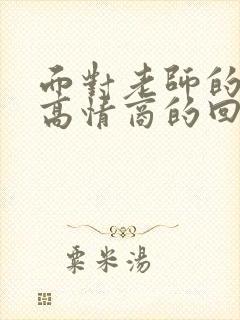 而對老師的
高情商的回
粟米湯